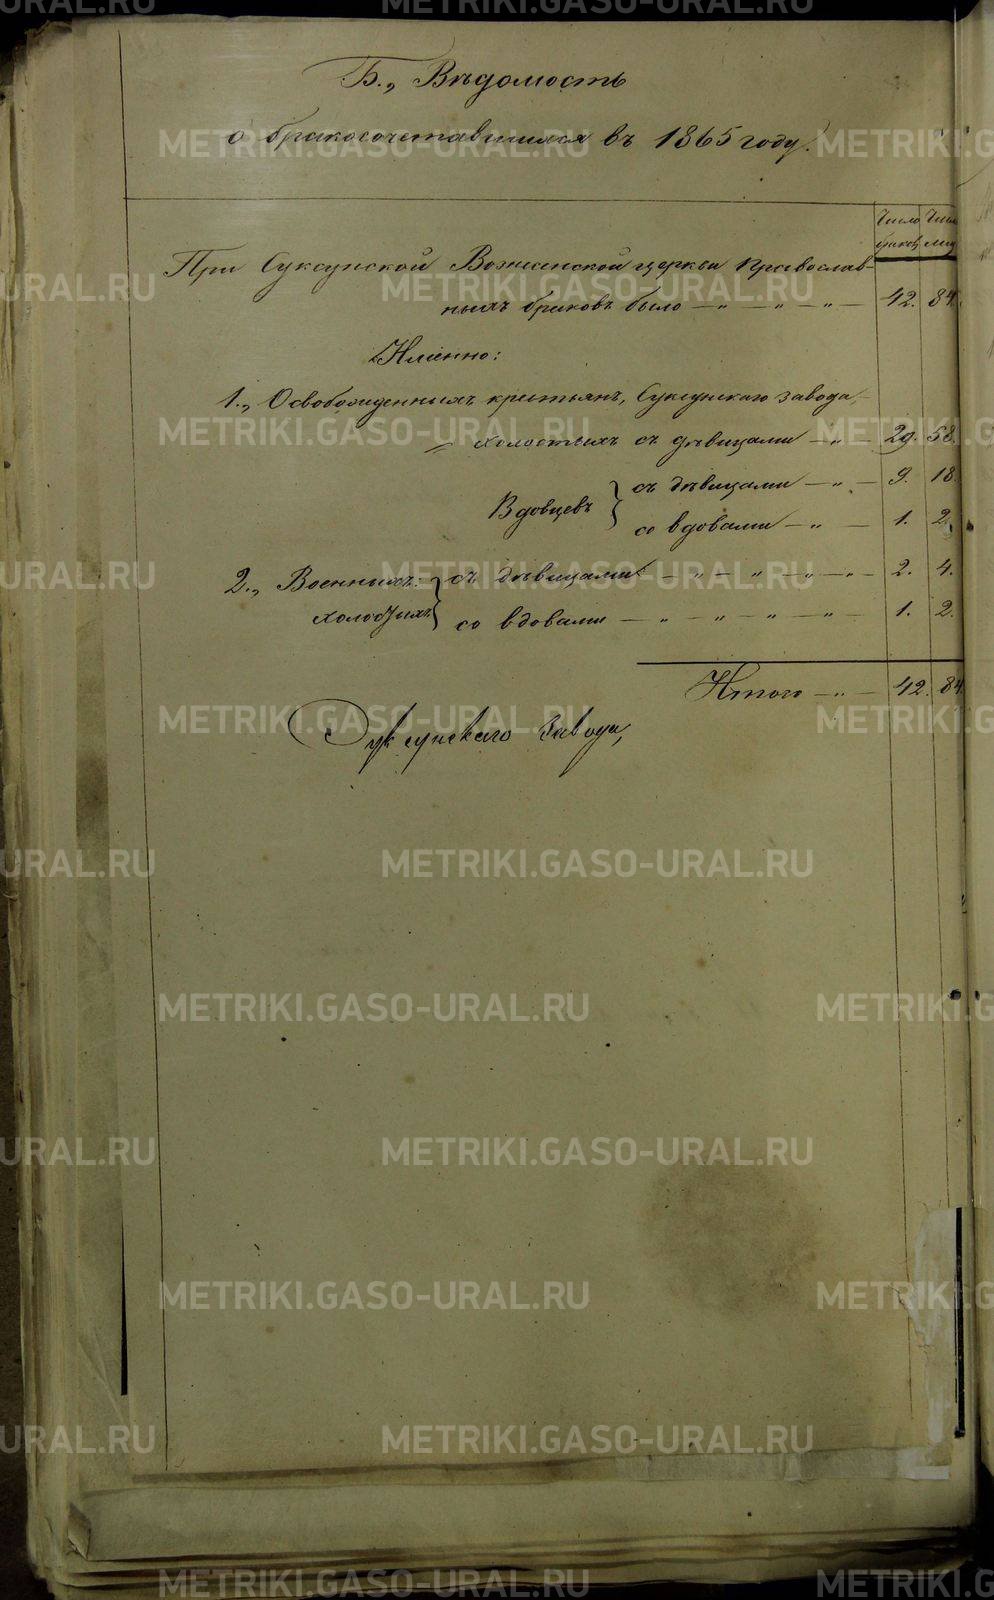 Б., Вѣдомость
о бракосочетавшихся въ 1865 году.
Число браков Число лиц
При Суксунской Вознесенской церкви Православ-
ныхъ браковъ было — „ — „ — „ — 42. 84.
Именно:
1., Освобожденныхъ крестьянъ, Суксунскаго завода,
холостыхъ съ дѣвицами — „ — 29. 58.
съ дѣвицами — „ — 9. 18.
Вдовцевъ
со вдовами — „ — 1. 2.
2., Военныхъ: съ дѣвицами — „ — „ — „ — „ — 2. 4.
холостыхъ со вдовами — „ — „ — „ — „ — 1. 2.
Итого — „ — 42. 84.
Суксунскаго Завода,
METRIKI.GASO-URAL.RU